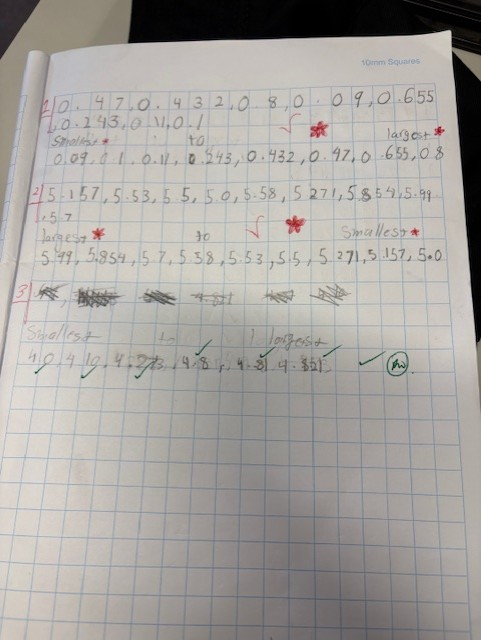 10mm Squares
1 0.47, 0.432, 0.8, 0.09, 0.655
, 0.243, 0.11, 0.1
Smallest * to largest *
0.09, 0.1, 0.11, 0.243, 0.432, 0.47, 0.655, 0.8
2 5.157, 5.53, 5.5, 5.0, 5.58, 5.271, 5.854, 5.99
, 5.7
largest * to Smallest *
5.99, 5.854, 5.7, 5.58, 5.53, 5.5, 5.271, 5.157, 5.0
3
Smallest to largest
4.0, 4.10, 4.273, 4.8, 4.81, 4.851